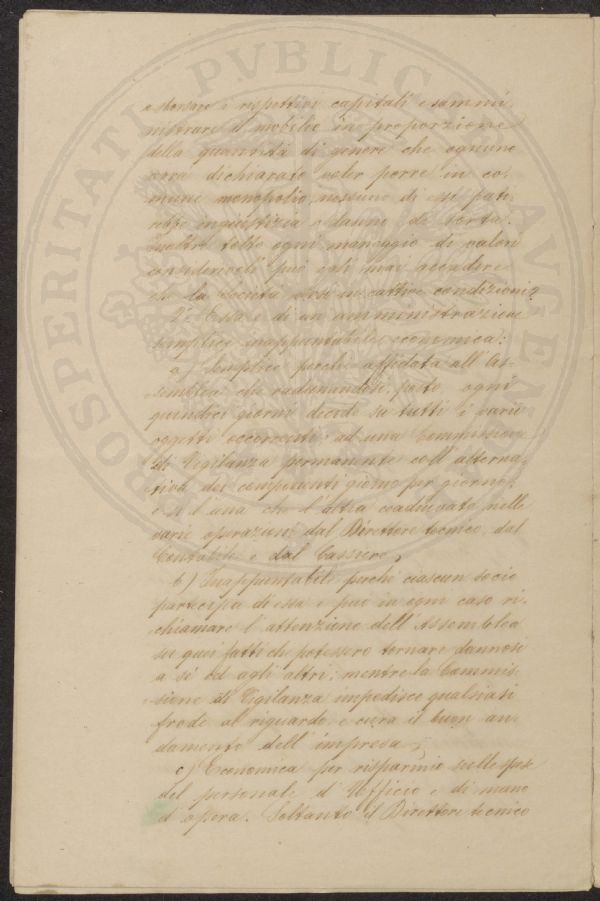 a sborsare i rispettivi capitali e sommi-
nistrare il mobilio in proporzione
della quantità di genere che ognuno
avrà dichiarato voler porre in co-
mune monopolio nessuno di essi pati-
rebbe ingiustizia o danno di sorta.
Inoltre tolto ogni maneggio di valori
considerevoli può mai accadere
che la Società cattive condizioni?
2º Essa è di un amministrazione
semplice inappuntabile, economica:
a) Semplice perchè affidata all'As-
semblea che radunandosi ogni
quindici giorni decide su tutti i varii
oggetti occorrenti; ad una Commissione
di Vigilanza permanente coll'alterna-
tiva dei componenti giorno per giorno;
e sì l'una che l'altra coadiuvate nelle
varie operazioni dal Direttore tecnico, dal
Contabile e dal Cassiere;
b) Inappuntabile perchè ciascun socio
partecipa di essa e può in ogni caso ri-
chiamare l'attenzione dell'Assemblea
su quei fatti che potessero tornare dannosi
a sè od agli altri; mentre la Commis-
sione di Vigilanza impedisce qualsiasi
frode al riguardo e cura il buon an-
damento dell'impresa;
c) Economica per risparmio sulle spese
del personale d'Ufficio e di mano
d'opera. Soltanto il Direttore tecnico
PROSPERITATI PVBLICAE AVGEN